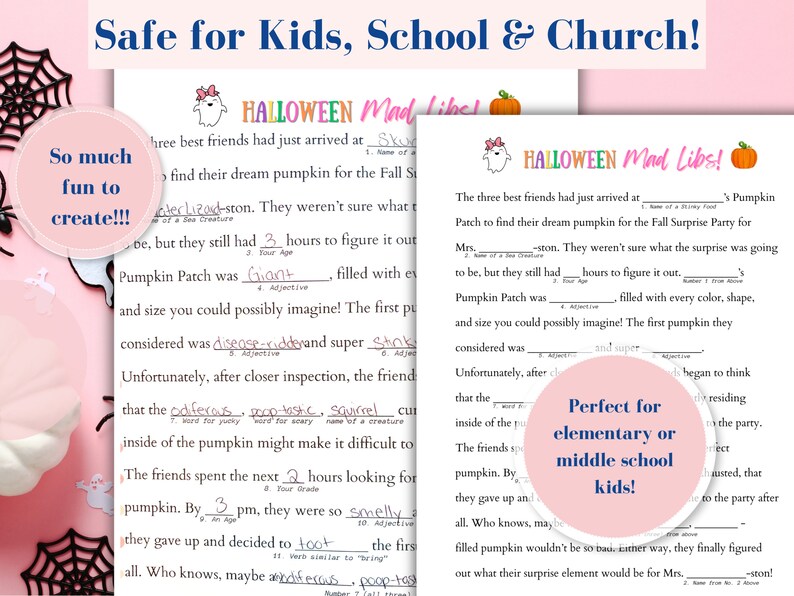 Safe for Kids, School & Church!
So much
fun to
create!!!
HALLOWEEN Mad Libs!
three best friends had just arrived at Skun
1. Name of a
to find their dream pumpkin for the Fall Surp
aterLizard-ston. They weren't sure what t
me of a Sea Creature
to be, but they still had 3 hours to figure it out
3. Your Age
Pumpkin Patch was Giant, filled with ev
4. Adjective
and size you could possibly imagine! The first pum
considered was disease-ridden and super Stink
5. Adjective 6. Adje
Unfortunately, after closer inspection, the friends
that the odiferous, poop-tastic, squirrel cur
7. Word for yucky word for scary name of a creature
inside of the pumpkin might make it difficult to
The friends spent the next 2 hours looking for
8. Your Grade
pumpkin. By 3 pm, they were so smelly a
9. An Age 10. Adjective
they gave up and decided to toot the first
11. Verb similar to "bring"
all. Who knows, maybe a odiferous, poop-tast
Number 7 (all three)
HALLOWEEN Mad Libs!
The three best friends had just arrived at ______________'s Pumpkin
1. Name of a Stinky Food
Patch to find their dream pumpkin for the Fall Surprise Party for
Mrs. _________-ston. They weren't sure what the surprise was going
2. Name of a Sea Creature
to be, but they still had ___ hours to figure it out. _________'s
3. Your Age Number 1 from Above
Pumpkin Patch was ___________, filled with every color, shape,
4. Adjective
and size you could possibly imagine! The first pumpkin they
considered was ___________ and super __________.
5. Adjective 6. Adjective
Unfortunately, after clos ds began to think
that the ly residing
7. Word for
inside of the pu to the party.
The friends sp rfect
pumpkin. By hausted, that
they gave up and d me to the party after
all. Who knows, maybe ________, _______ -
from above
filled pumpkin wouldn't be so bad. Either way, they finally figured
out what their surprise element would be for Mrs. __________-ston!
2. Name from No. 2 Above
Perfect for
elementary or
middle school
kids!